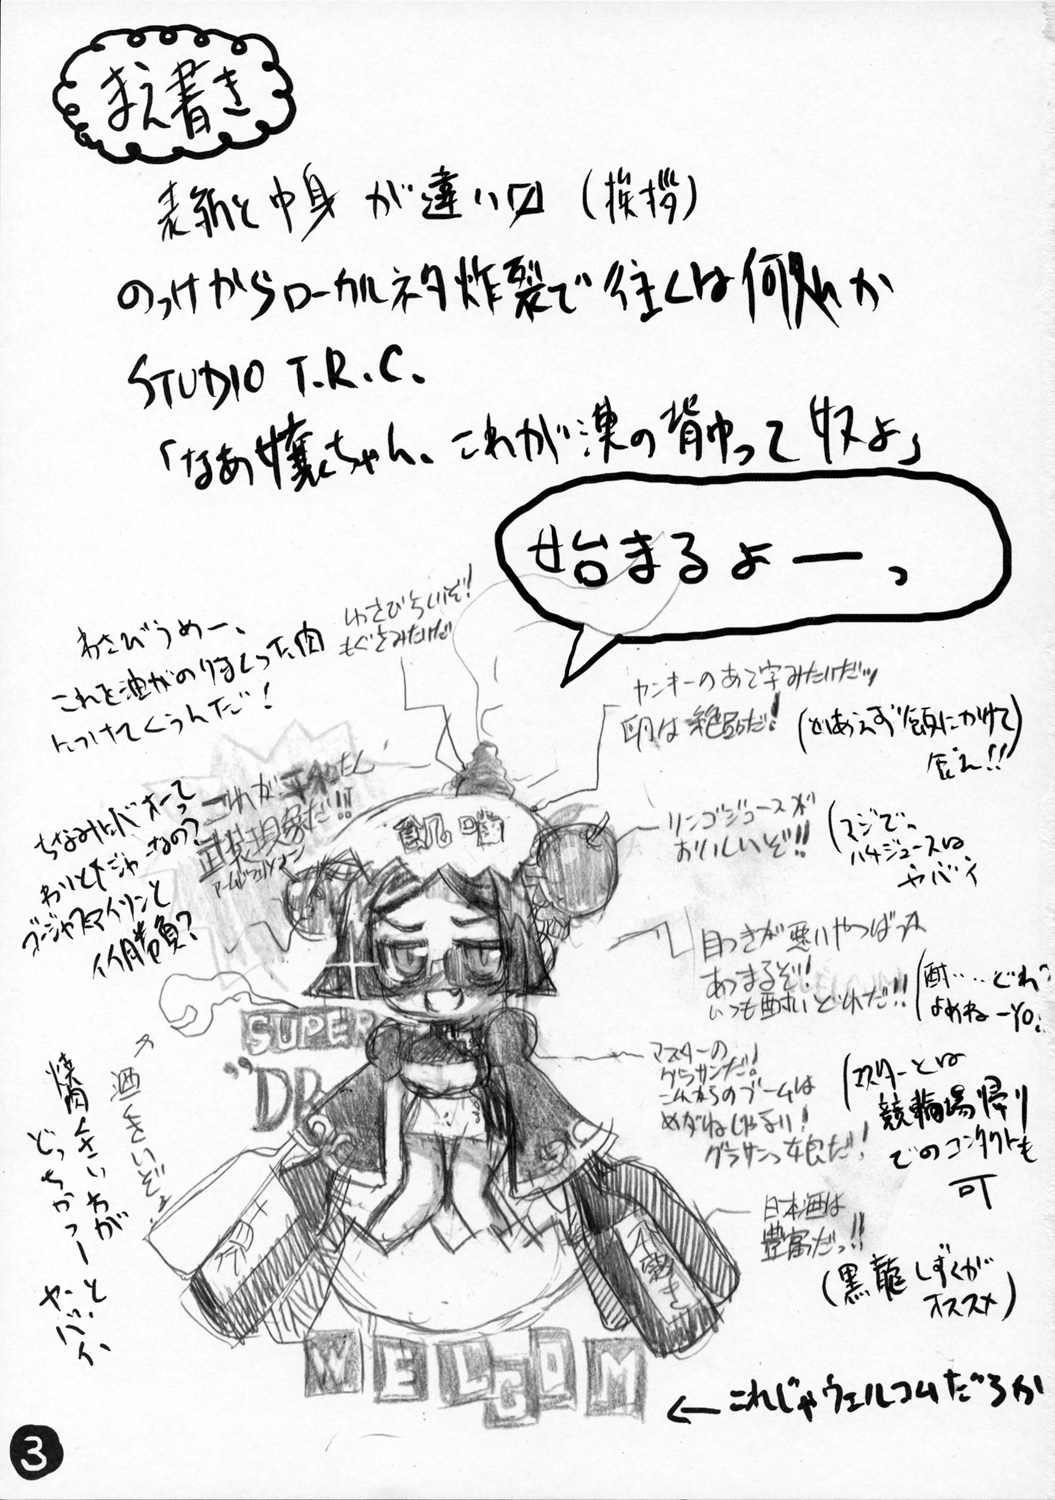 まえ書き
表紙と中身が違い〼(挨拶)
のっけからローカルネタ炸裂で往くは何処か
STUDIO T.R.C.
「なあ嬢ちゃん、これが漢の背中って奴よ」
始まるよーっ
わさびうめー、
これを油がのりまくった肉
につけてくうんだ!
わさびらいいぞ!
もぐさみたいだ
ヤンキーのあて字みたいだッ
卵は絶品だ!
(とりあえず飯にかけて
喰え!!)
これが平和たん
武装現象だ!!
リンゴジュースが
おいしいぞ!!
(マジでっ
ハチジュースは
ヤバイ
目つきが悪いやつばっか
あつまるぞ!
いつも酔いどれだ!!
(酎‥‥どれ?
よめねーYO!
SUPER
"DR
マスターの
グラサンだ!
これからのブームは
めがねじゃない!
グラサンっ娘だ!
(マスターとは
競輪場帰り
でのコンタクトも
可
酒くさいぞっ
焼肉くさいわが
どっちかっつーと、
ヤバイ
日本酒は
豊富だっ!!
(黒龍しずくが
オススメ)
WELCOM
←これじゃウェルコムだろか
3